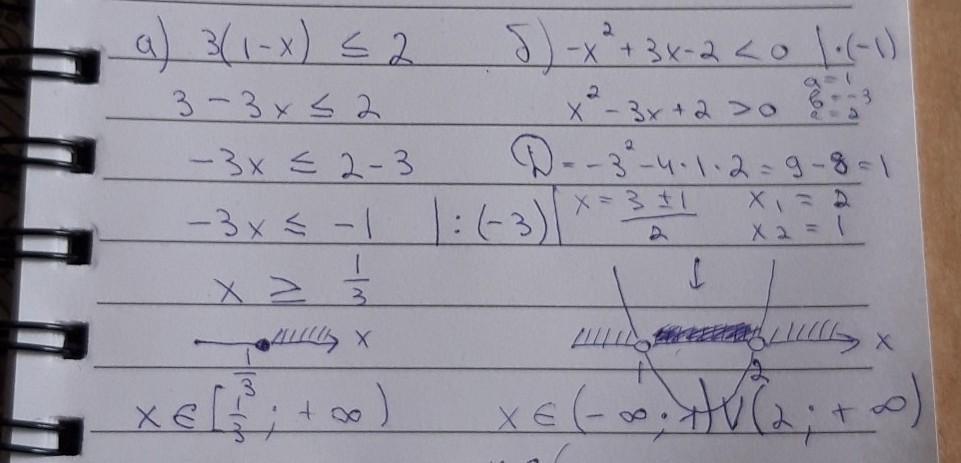 а) 3(1-x) ≤ 2
3 - 3x ≤ 2
-3x ≤ 2-3
-3x ≤ -1 |:(-3)
x ≥ 1/3
1/3 x
x ∈ [1/3; +∞)
б) -x² + 3x - 2 < 0 |·(-1)
x² - 3x + 2 > 0
a = 1
b = -3
c = 2
D = -3² - 4·1·2 = 9 - 8 = 1
x = (3 ± 1)/2
x1 = 2
x2 = 1
1 2 x
x ∈ (-∞; 1) ∪ (2; +∞)